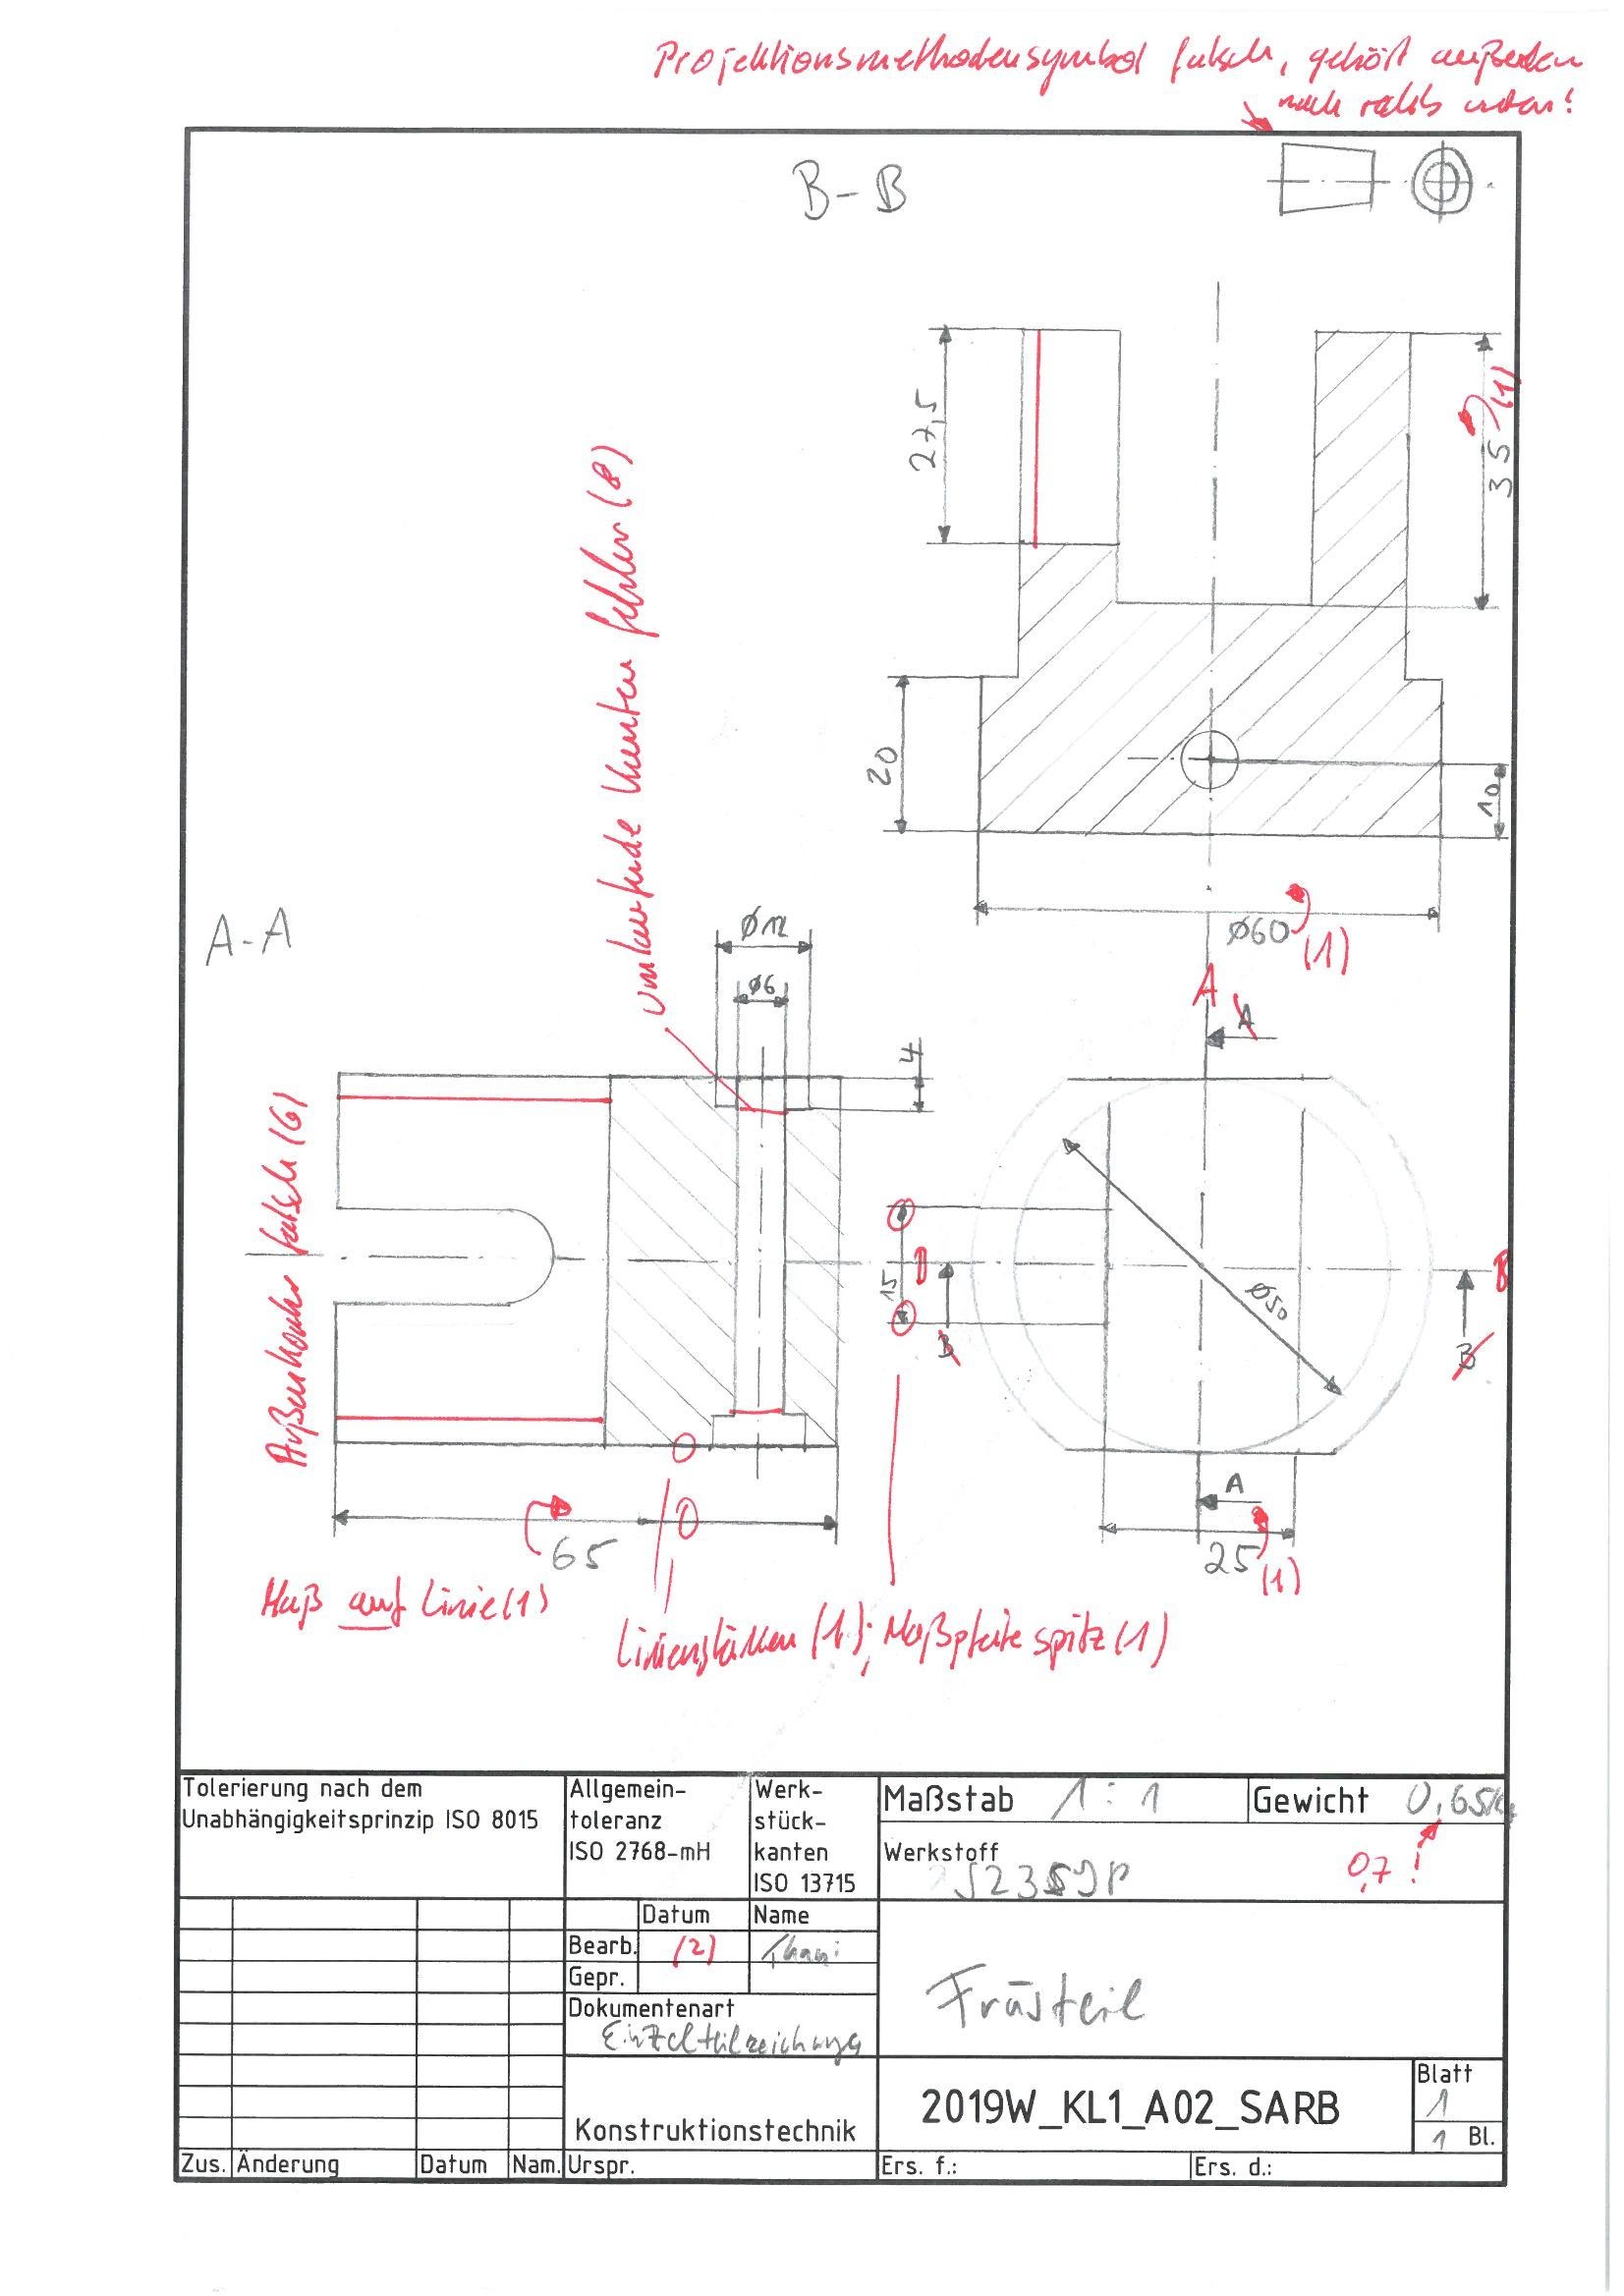 Projektionsmethodensymbol falsch, gehört außerdem
nach rechts unten!
B-B
27,5
35
(1)
umlaufende Kanten fehlen (8)
20
10
Ø60
(1)
A-A
Ø12
Ø6
4
A
A
Außenkontur falsch (6)
15
B
B
B
Ø50
A
65
25
(1)
Maß auf Linie (1)
Linienstärken (1); Maßpfeile spitz (1)
Tolerierung nach dem
Unabhängigkeitsprinzip ISO 8015
Allgemein-
toleranz
ISO 2768-mH
Werk-
stück-
kanten
ISO 13715
Maßstab 1:1
Gewicht 0,65kg
0,7!
Werkstoff
S235JR
Datum Name
Bearb. (2)
Gepr.
Dokumentenart
Einzelteilzeichnung
Frästeil
Konstruktionstechnik
2019W_KL1_A02_SARB
Blatt
1
1 Bl.
Zus. Änderung Datum Nam. Urspr. Ers. f.: Ers. d.: